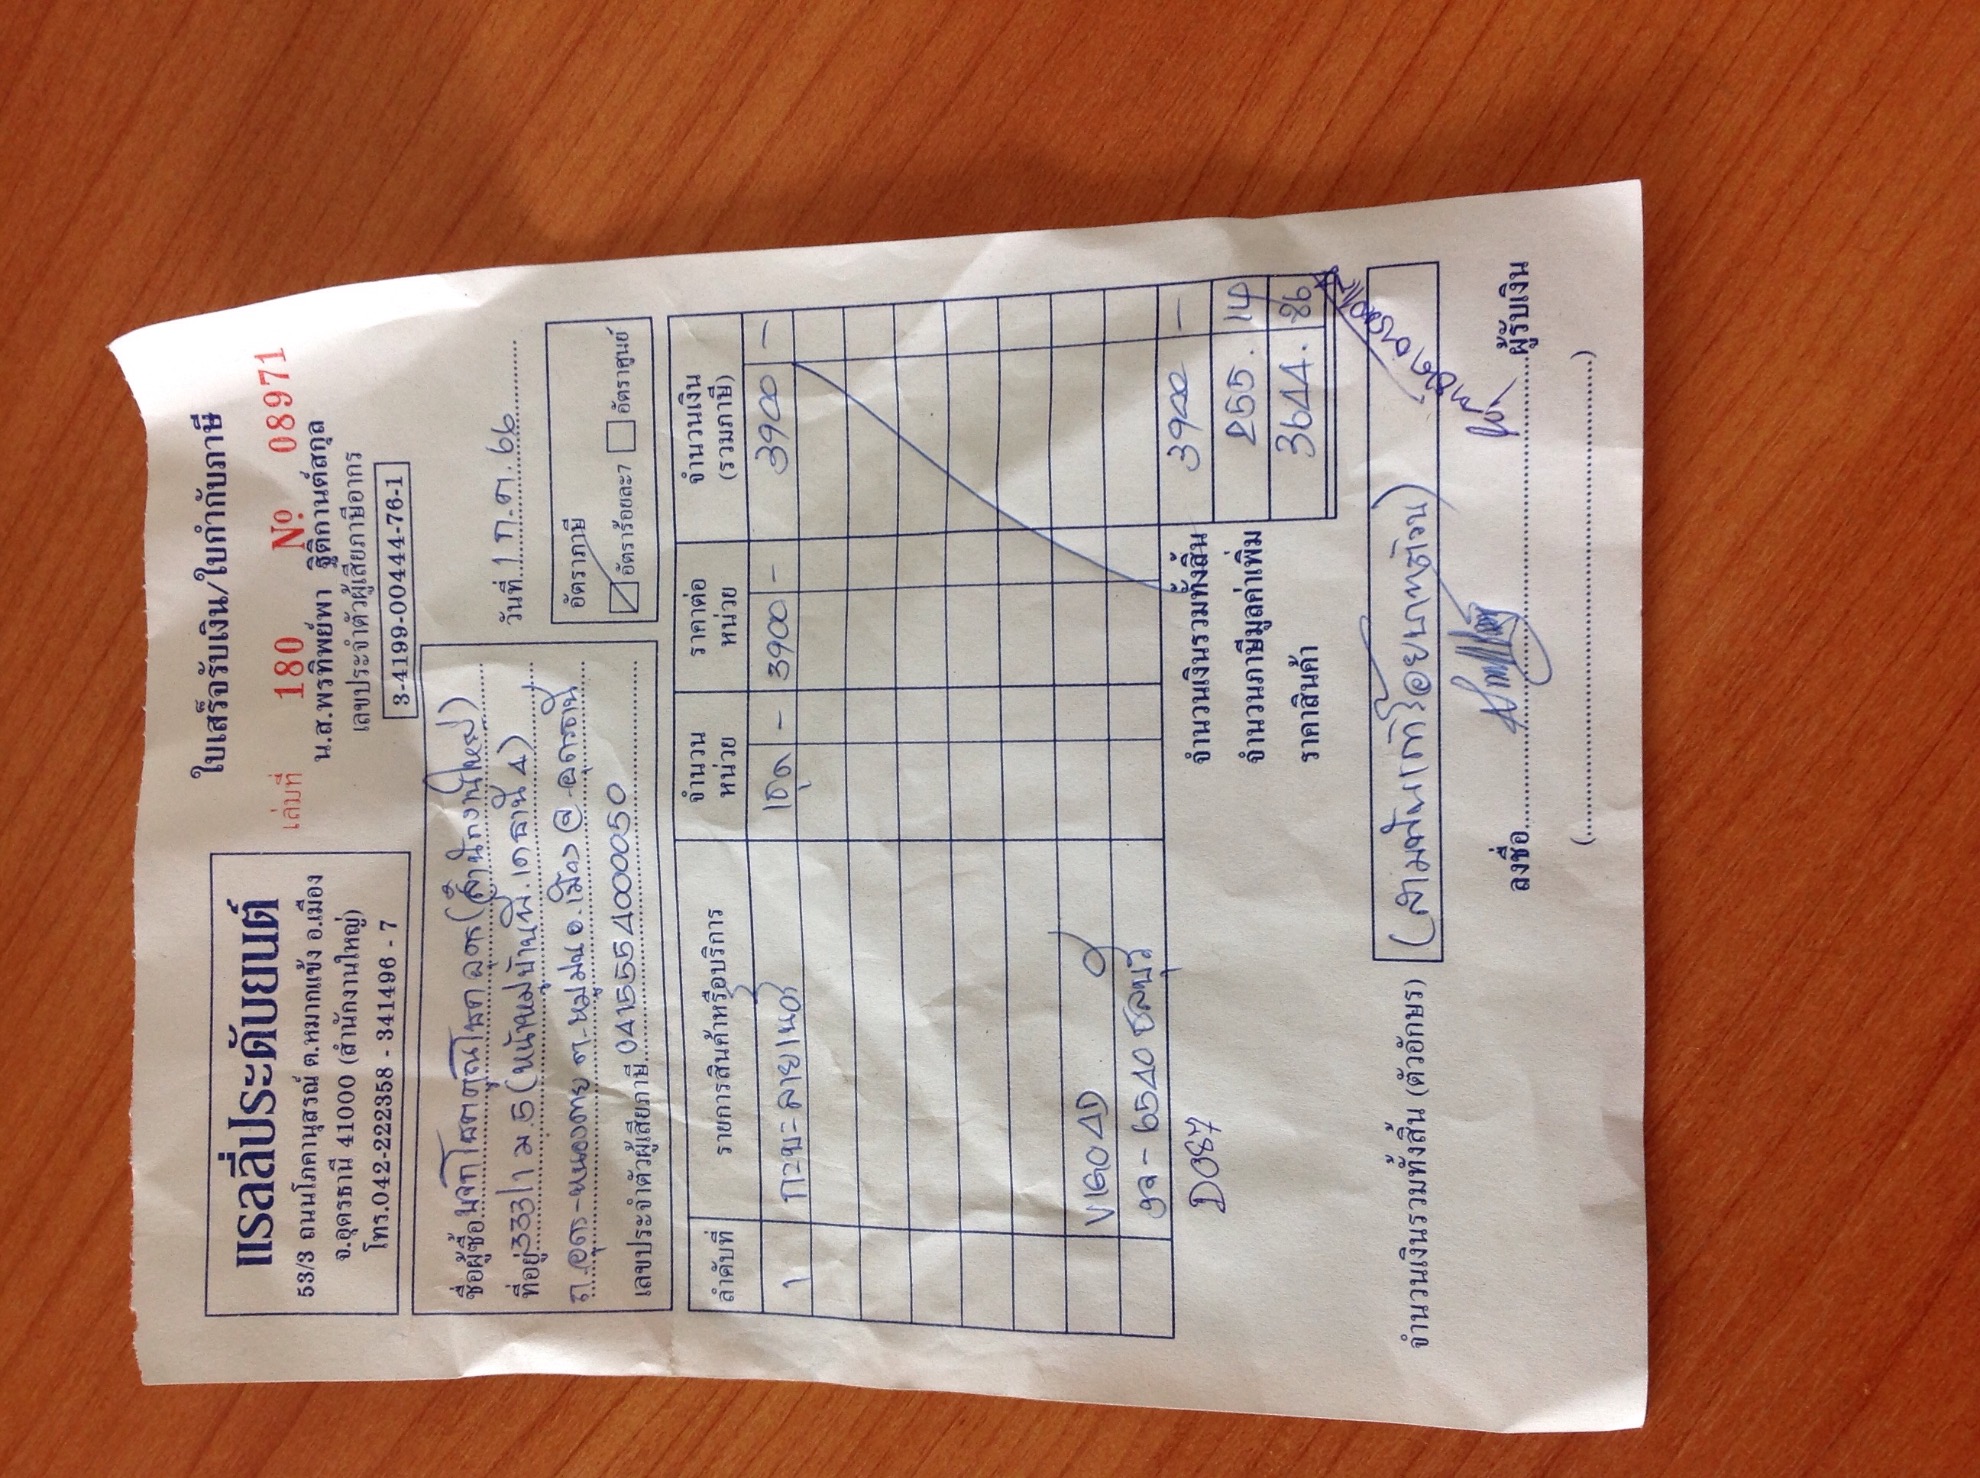 แรลลี่ประดับยนต์
53/3 ถนนโภคานุสรณ์ ต.หมากแข้ง อ.เมือง
จ.อุดรธานี 41000 (สำนักงานใหญ่)
โทร.042-222358 - 341496 - 7
ใบเสร็จรับเงิน/ใบกำกับภาษี
เล่มที่ 180 No. 08971
น.ส.พรทิพย์พา ฐิติกานต์สกุล
เลขประจำตัวผู้เสียภาษีอากร
3-4199-00444-76-1
ชื่อผู้ซื้อ (สำนักงานใหญ่)
ที่อยู่ 333/1 ม.5 (หน้าหมู่บ้านพี.เดธานี 4)
ถ.อุดร-หนองคาย ต.หมูม่น อ.เมือง จ.อุดรธานี
เลขประจำตัวผู้เสียภาษี 0415554000050
วันที่ 1 ก.ค. 66
อัตราภาษี
อัตราร้อยละ7 อัตราศูนย์
ลำดับที่ รายการสินค้าหรือบริการ จำนวนหน่วย ราคาต่อหน่วย จำนวนเงิน (รวมภาษี)
1 กะบะลายเนอร์ 1ชุด - 3900 - 3900 -
VIGO 4D
บจ-6540 ชลบุรี
D087
จำนวนเงินรวมทั้งสิ้น 3900 -
จำนวนภาษีมูลค่าเพิ่ม 255. 14
ราคาสินค้า 3644. 86
จำนวนเงินรวมทั้งสิ้น (ตัวอักษร) (สามพันเก้าร้อยบาทถ้วน)
ลงชื่อ ผู้รับเงิน
( )